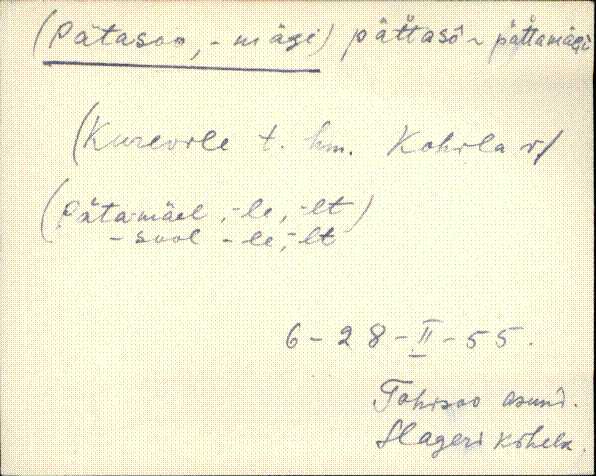 (Pätasoo, -mägi) pätìtasô ~ pätìtamägi
(Kurevere t. hm. Kohila v/
(Pätamäel, -le, -lt)
- sool -le, -lt
6 - 28 - II - 55.
Tohisoo asund.
Hageri kihelk.